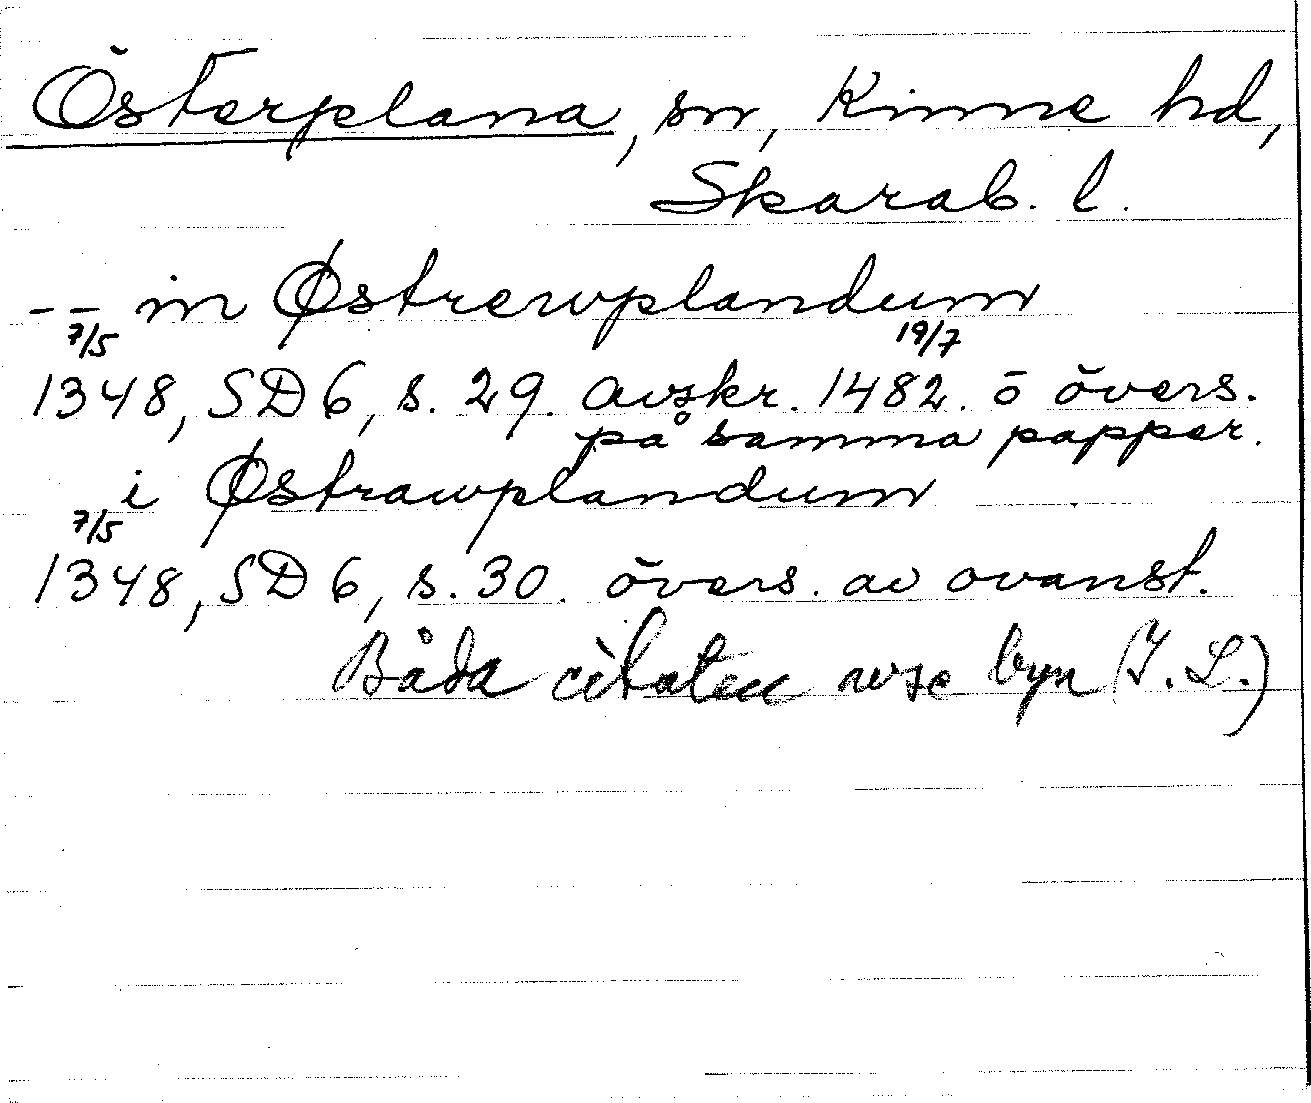 Österplana, sn, Kinne hd,
Skarab. l.
-- in Østrewplandum
7/5 19/7
1348, SD 6, s. 29. avskr. 1482. ö övers.
på samma papper.
i Østrawplandum
7/5
1348, SD 6, s. 30. övers. av ovanst.
Båda citaten avse byn (I. L.)